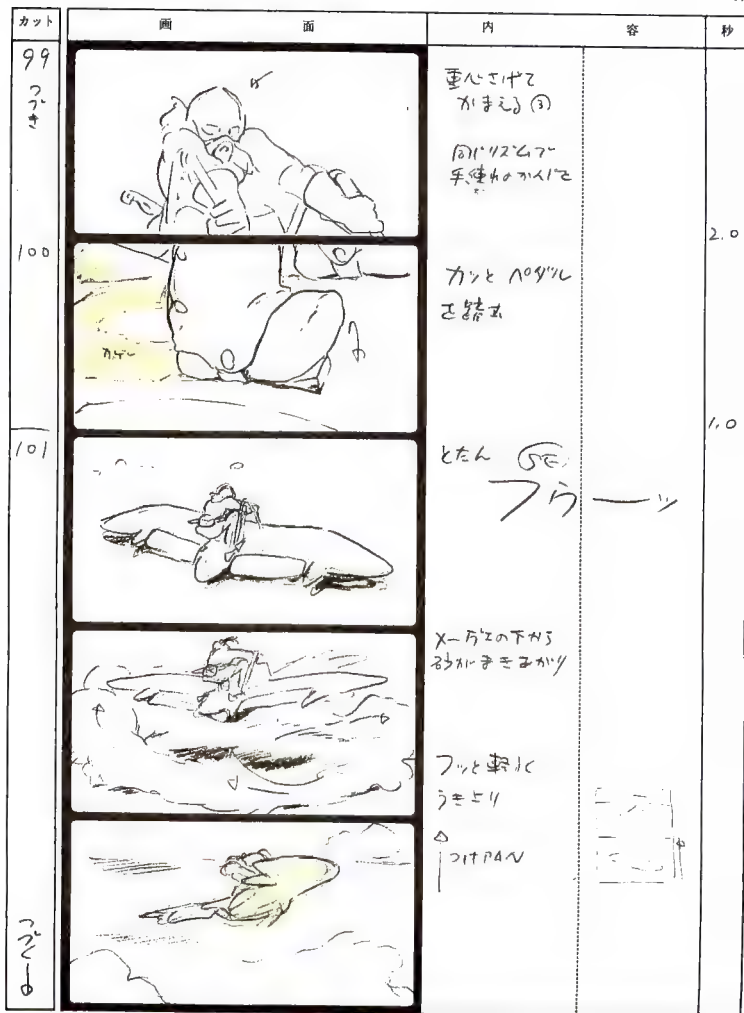 カット 画面 内容 秒
99
つづき
重心さげて
かまえる③
同じリズムで
手馴れたかんじで
2.0
100
カゲ
カッとペダル
を踏む
1.0
101
とたん SE
フワーッ
メーヴェの下から
砂がまきあがり
フッと軽く
うき上り
つけPAN
つづく